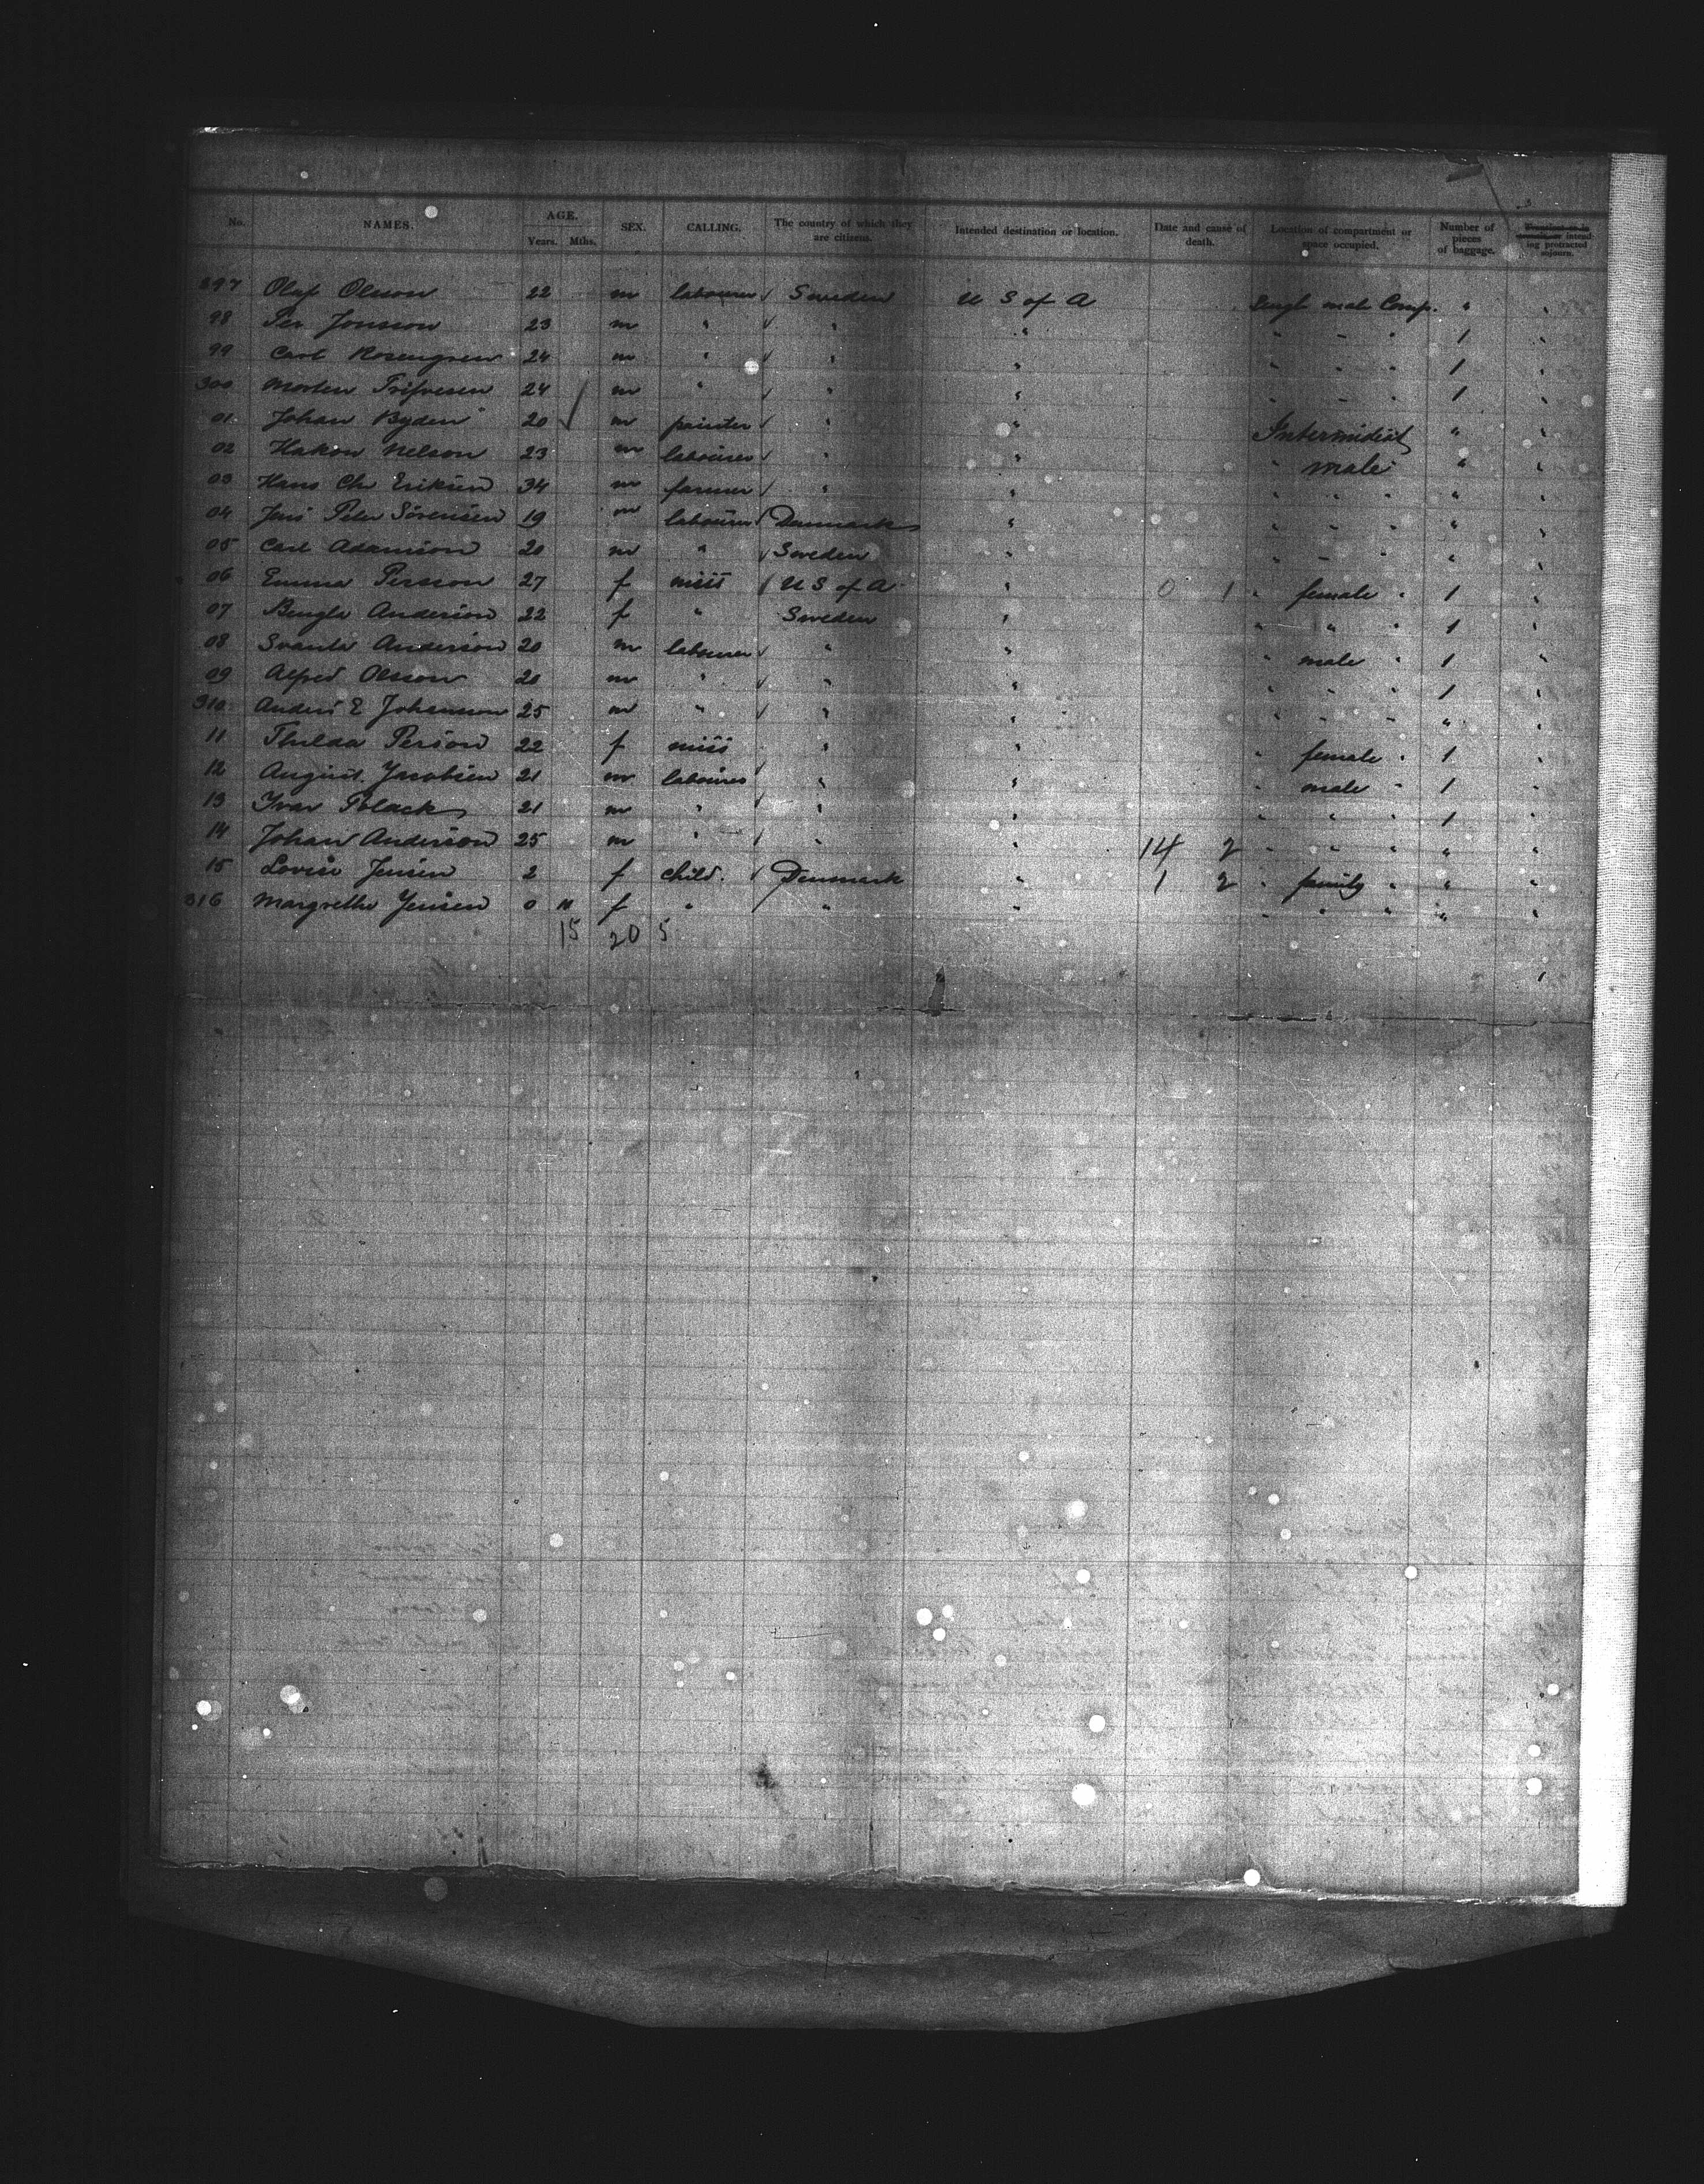 No. NAMES. AGE. Years. Mths. SEX. CALLING. The country of which they are citizens. Intended destination or location. Date and cause of death. Location of compartment or space occupied. Number of pieces of baggage. intending protracted sojourn.
297 Oluf Olsson 22 m labourer √ Sweden U S of A male Comp. "
98 Per Jonsson 23 m " √ " " " " " 1 "
99 Carl Rosengren 24 m " √ " " " " " 1 "
300 Morten 24 m " √ " " " " " 1 "
01 Johan Byden 20 m painter √ " " Intermidiat " "
02 Hakon Nelson 23 m labourer √ " " " male " "
03 Hans Chr Eriksen 34 m farmer √ " " " " " " "
04 Jens Peter Sörensen 19 m labourer √ Danmark " " " " " "
05 Carl Adamson 20 m " √ Sweden " " " " " "
06 Emma Persson 27 f miss √ U S of A " 0 1 " female " 1 "
07 Bengta Anderson 22 f " Sweden " " " " 1 "
08 Svante Anderson 20 m labourer √ " " " male " 1 "
09 Alfred Olsson 20 m " √ " " " " " 1 "
310 Anders E Johansson 25 m " √ " " " " " " "
11 Thilda Person 22 f miss " " " female " 1 "
12 August Jacobsen 21 m labourer √ " " " male " 1 "
13 Ivar 21 m " √ " " " " " 1 "
14 Johan Anderson 25 m " √ " " 14 2 " " " " "
15 Lovise Jensen 2 f child. √ Denmark " 1 2 " family " " "
316 Margrethe Jensen 0 11 f " / " " " " " " "
15 20 5